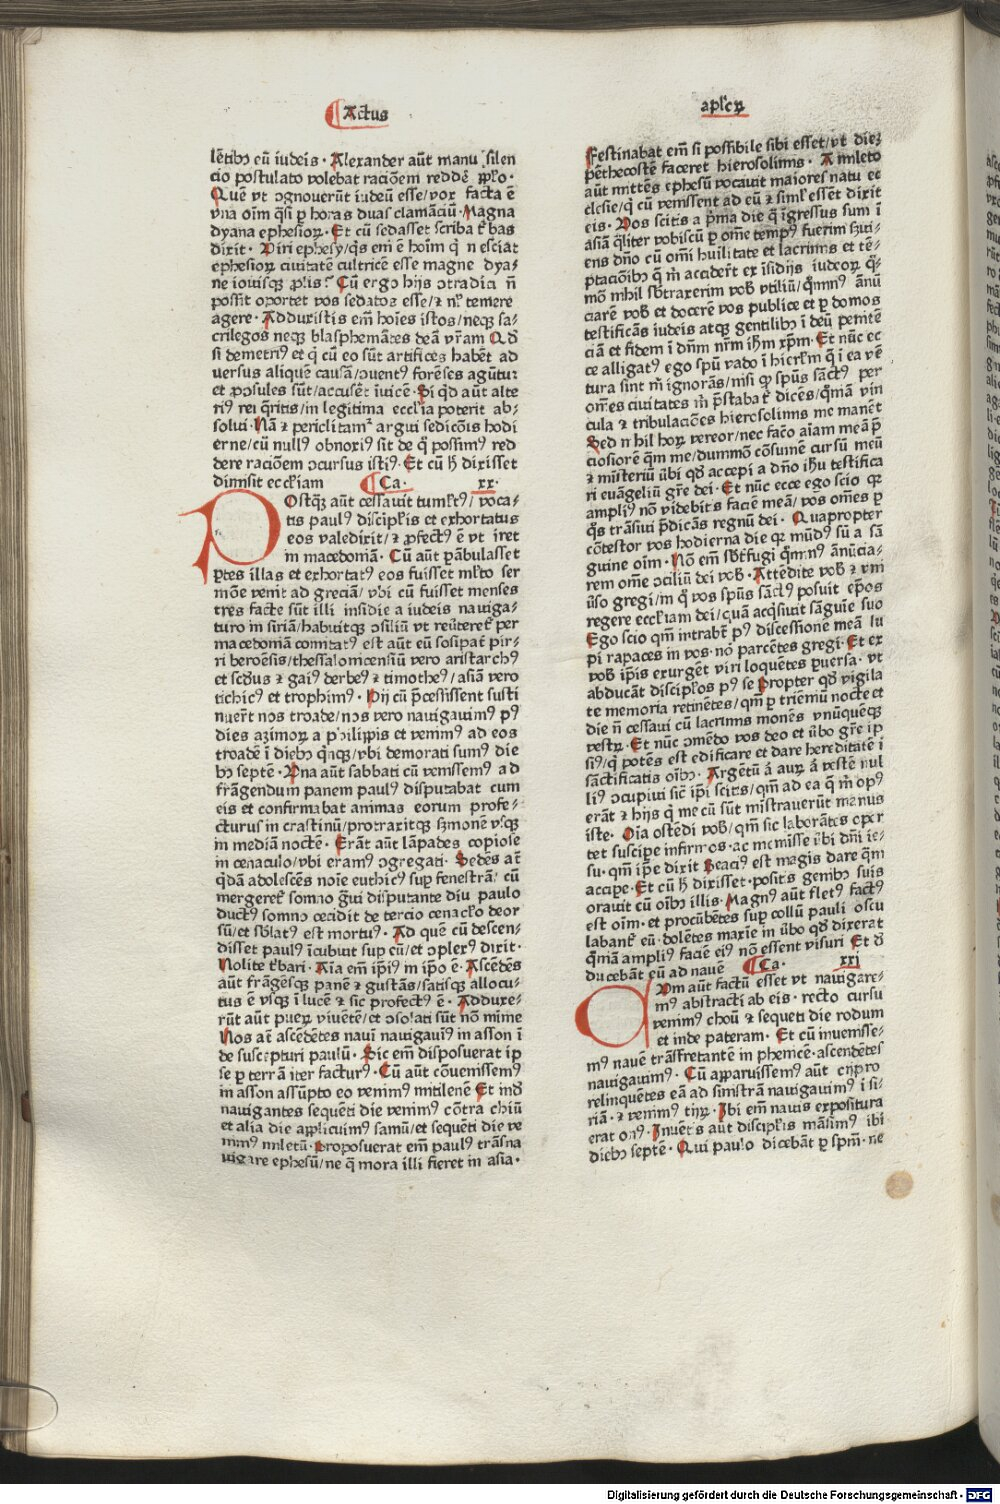 Actus
aplᷣcꝝ
lētibꝫ eū iudeis· Alexander aūt manu silen
cio postulato volebat raciōem reddē pplo·
Quē vt ꝯgnouerūt iudeū esse/vox facta ē
vna oīm q̄si p horas duas clamāciū· Magna
dyana ephesioꝝ· Et cū sedasset scriba t̄bas
dixit· Viri ephesy/q̄s em̄ ē hoīm q̄ nesciat
ephesioꝝ ciuitatē cultricē esse magne dya⸗
ne iouisqꝫ ꝓlis· Cū ergo hijs ꝯtradici n̄
possit oportet vos sedatos esse/⁊ nl temere
agere· Adduxistis em̄ hoīes istos/neqꝫ sa⸗
crilegos neqꝫ blasphemātes deā vr̄am Qd̄
si demetriꝰ et q̄ cū eo sūt artifices habēt ad
uersus aliquē causā/ꝯuentꝰ forēses agūtur
et ꝓꝯsules sūt/accusēt īuicē· Si qd̄ aūt alte
riꝰ rei q̄ritis/in legitima ecclīa poterit ab⸗
solui· Nā ⁊ periclitamᷣ argui sediciōis hodi
erne/cū nullꝰ obnoxiꝰ sit de q̄ possimꝰ red
dere raciōem ꝯcursus istiꝰ· Et cū h̄ dixisset
dimisit eccliam Ca· xx·
POstqꝫ aūt cessauit tumultꝰ/ voca⸗
tis paulꝰ discipulis et exhortatus
eos valedixit/ ⁊ ꝓfectꝰ ē vt iret
in macedoniā· Cū aūt pābulasset
ꝑtes illas et exhortatꝰ eos fuisset mlto ser
mōe venit ad greciā/ vbi cū fuisset menses
tres facte sūt illi insidie a iudeis nauiga⸗
turo in siriā/habuitqꝫ ꝯsiliū vt reūteret per
macedoniā comitatꝰ est aūt eū sosipat pir⸗
ri beroēsis/thessalonicensiū vero aristarchꝰ
et scdus ⁊ gaiꝰ derbeꝰ ⁊ timotheꝰ/ asiā vero
tichicꝰ et trophimꝰ· Hij cū p̄cessissent susti
nuerūt nos troade/nos vero nauigauimꝰ pꝰ
dies azimoꝝ a philippis et venimꝰ ad eos
troadē ī diebꝫ q̄nqꝫ/vbi demorati sumꝰ die
bꝫ septē· Vna aūt sabbati cū venissemꝰ ad
frāgendum panem paulꝰ disputabat cum
eis et confirmabat animas eorum profe⸗
cturus in crastinū/protraxitqꝫ s̄monē vsqꝫ
in mediā noctē· Erāt aūt lāpades copiose
in cenaculo/vbi eramꝰ ꝯgregati· Sedēs at̄
q̄dā adolescēs noīe euthicꝰ sup fenestrā/ cū
mergeret somno ḡui disputante diu paulo
ductꝰ somno cecidit de tercio cenaclo deor
sū/et sblatꝰ est mortuꝰ· Ad quē cū descen⸗
disset paulꝰ īcibuit sup eū/et ꝯplexꝰ dixit·
Nolite t̄bari· Aīa em̄ ip̄iꝰ in ip̄o ē· Ascēdēs
aūt frāgēsqꝫ panē ⁊ gustās/satisqꝫ allocu⸗
tus ē vsqꝫ ī lucē ⁊ sic profectꝰ ē· Adduxe⸗
rūt aūt pueꝝ viuētē/et ꝯsolati sūt nō mīme
Nos at̄ ascēdētes nauī nauigauiꝰ in asson ī
de suscepturi paulū· Sic em̄ disposuerat ip
se p terrā iter facturꝰ· Cū aūt cōuenissemꝰ
in asson assūpto eo venimꝰ mitilenē Et īnd
nauigantes sequēti die venimꝰ cōtra chiū
et alia die applicuimꝰ samū/et sequēti die ve
nimꝰ miletū· Proposuerat em̄ paulꝰ trāsna
uigare ephesū/ne q̄ mora illi fieret in asia·
Festinabat em̄ si possibile sibi esset/vt diē
pēthecostē faceret hierosolimis· A mileto
aūt mittēs ephesū vocauit maiores natu ec
clesie/q̄ cū venissent ad eū ⁊ siml essēt dixit
eis· Vos scitis a p̄ma die q̄ īgressus sum ī
asiā q̄liter vobiscū p om̄e tempꝰ fuerim s̄ui⸗
ens dn̄o cū om̄i huīlitate et lacrimis et tē⸗
ptaciōibꝫ q̄ m̄ acciderūt ex īsidijs iudeoꝝ q̄⸗
mō nihil sbtraxerim vob vtiliū/ q̄minꝰ ānū
ciarē vob et docerē vos publice et p domos
testificās iudeis atqꝫ gentilibꝫ ī deū penitē
ciā et fidem ī dn̄m nr̄m ih̄m xp̄m· Et nūc ec
ce alligatꝰ ego spū vado ī hierlm q̄ ī ea vē
tura sint m̄ ignorās/nisi qꝫ spūs sāctꝰ per
om̄es ciuitates m̄ p̄stabat̄ dicēs/ q̄mā vin
cula ⁊ tribulaciōes hierosolimis me manēt
Sed nihil hoꝝ vereor/nec facio aīam meā p̄
ciosiorē q̄m me/dummō cōsumē cursū meū
⁊ misteriū ūbi qd̄ accepi a dn̄o ih̄u testifica
ri euāgeliū gr̄e dei· Et nūc ecce ego scio qꝛ
ampliꝰ nō videbitis faciē meā/ vos om̄es p
q̄s trāsiui p̄dicās regnū dei· Quapropter
cōtestor vos hodierna die qꝛ mūdꝰ sū a sā
guine oīm· Nō em̄ sbtfugi q̄minꝰ ānūcia⸗
rem om̄e ꝯciliū dei vob· Attēdite vob ⁊ vni
ūso gregi/in q̄ vos spūs sāctꝰ posuit ep̄os
regere eccliam dei/quā acq̄siuit sāguīe suo
Ego scio qm̄ intrabūt pꝰ discessionē meā lu
pi rapaces in vos· nō parcētes gregi· Et ex
vob ip̄is exurgēt viri loquētes puersa· vt
abducāt discipulos pꝰ se Propter qd̄ vigila
te memoria retinētes/qm̄ p trienniū nocte et
die n̄ cessaui cū lacrimis monēs vnūquēqꝫ
vestꝝ· Et nūc ꝯmēdo vos deo et ūbo gr̄e ip
siꝰ/q̄ potēs est edificare et dare hereditatē ī
sāctificatis oībꝫ· Argētū ā auꝝ ā vestē nul
liꝰ ꝯcupiui sic̄ ip̄i scitis/qm̄ ad ea q̄ m̄ opꝰ
erāt ⁊ hijs q̄ mecū sūt mīstrauerūt manus
iste· Oīa ostēdi vob/ qm̄ sic laborātes opor
tet suscipe infirmos· ac meīnisse ūbi dn̄i ie⸗
su· qm̄ ip̄e dixit Beaciꝰ est magis dare q̄m
accipe· Et cū h̄ dixisset· positis genibꝫ suis
orauit cū oībꝫ illis· Magnꝰ aūt fletꝰ factꝰ
est oīm· et procūbētes sup collū pauli oscu
labant̄ eū· dolētes maxīe in ūbo qd̄ dixerat
q̄mā ampliꝰ faciē eiꝰ nō essent visuri Et d
ducebāt eū ad nauē Ca· xxj
CVm aūt factū esset vt nauigare⸗
mꝰ abstracti ab eis· recto cursu
venimꝰ choū ⁊ sequēti die rodum
et inde pateram· Et cū inuenisse⸗
mꝰ nauē trāsfretantē in phenicē· ascendētes
nauigauimꝰ· Cū apparuissemꝰ aūt cipro
relinquētes eā ad sinistrā nauigauimꝰ ī si⸗
riā· ⁊ venimꝰ tiꝝ· Ibi em̄ nauis expositura
erat onꝰ· Inuētis aūt disciplis māsimꝰ ibi
diebꝫ septē· Qui paulo dicebāt p spm̄· ne
Digitalisierung gefördert durch die Deutsche Forschungsgemeinschaft - DFG